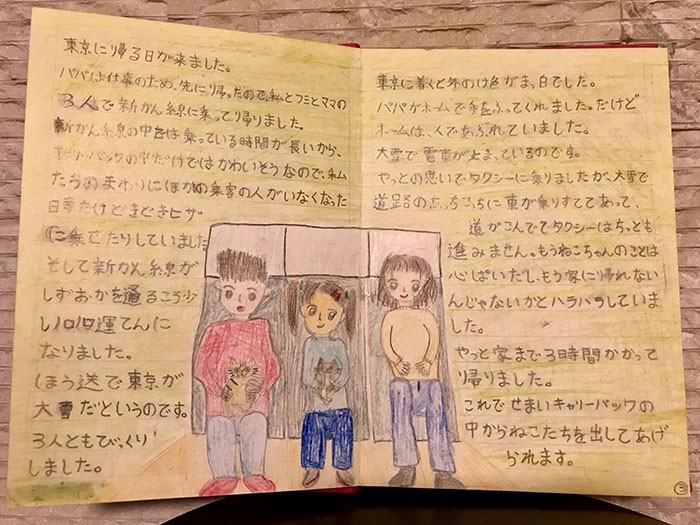 東京に帰る日が来ました。
パパは仕事のため、先に帰ったので、私とフミとママの
3人で新かん線に乗って帰りました。
新かん線の中では乗っている時間が長いから、
キャリーバックの中だけではかわいそうなので、私
たちのまわりにほかの乗客の人がいなくなった
時だけときどきヒザ
に乗せたりしていました
そして新かん線が
しずおかを通るころ少
しノロノロ運てんに
なりました。
ほう送で東京が
大雪だというのです。
3人ともびっくり
しました。
東京に着くと外のけ色がまっ白でした。
パパがホームで手をふってくれました。だけど
ホームは、人であふれていました。
大雪で電車が止まっているのです。
やっとの思いでタクシーに乗りましたが、大雪で
道路のあっちこっちに車が乗りすててあって、
道がこんでてタクシーはちっとも
進みません。もうねこちゃんのことは
心ぱいだし、もう家に帰れない
んじゃないかとハラハラしていま
した。
やっと家まで3時間かかって
帰りました。
これでせまいキャリーバックの
中からねこたちを出してあげ
られます。